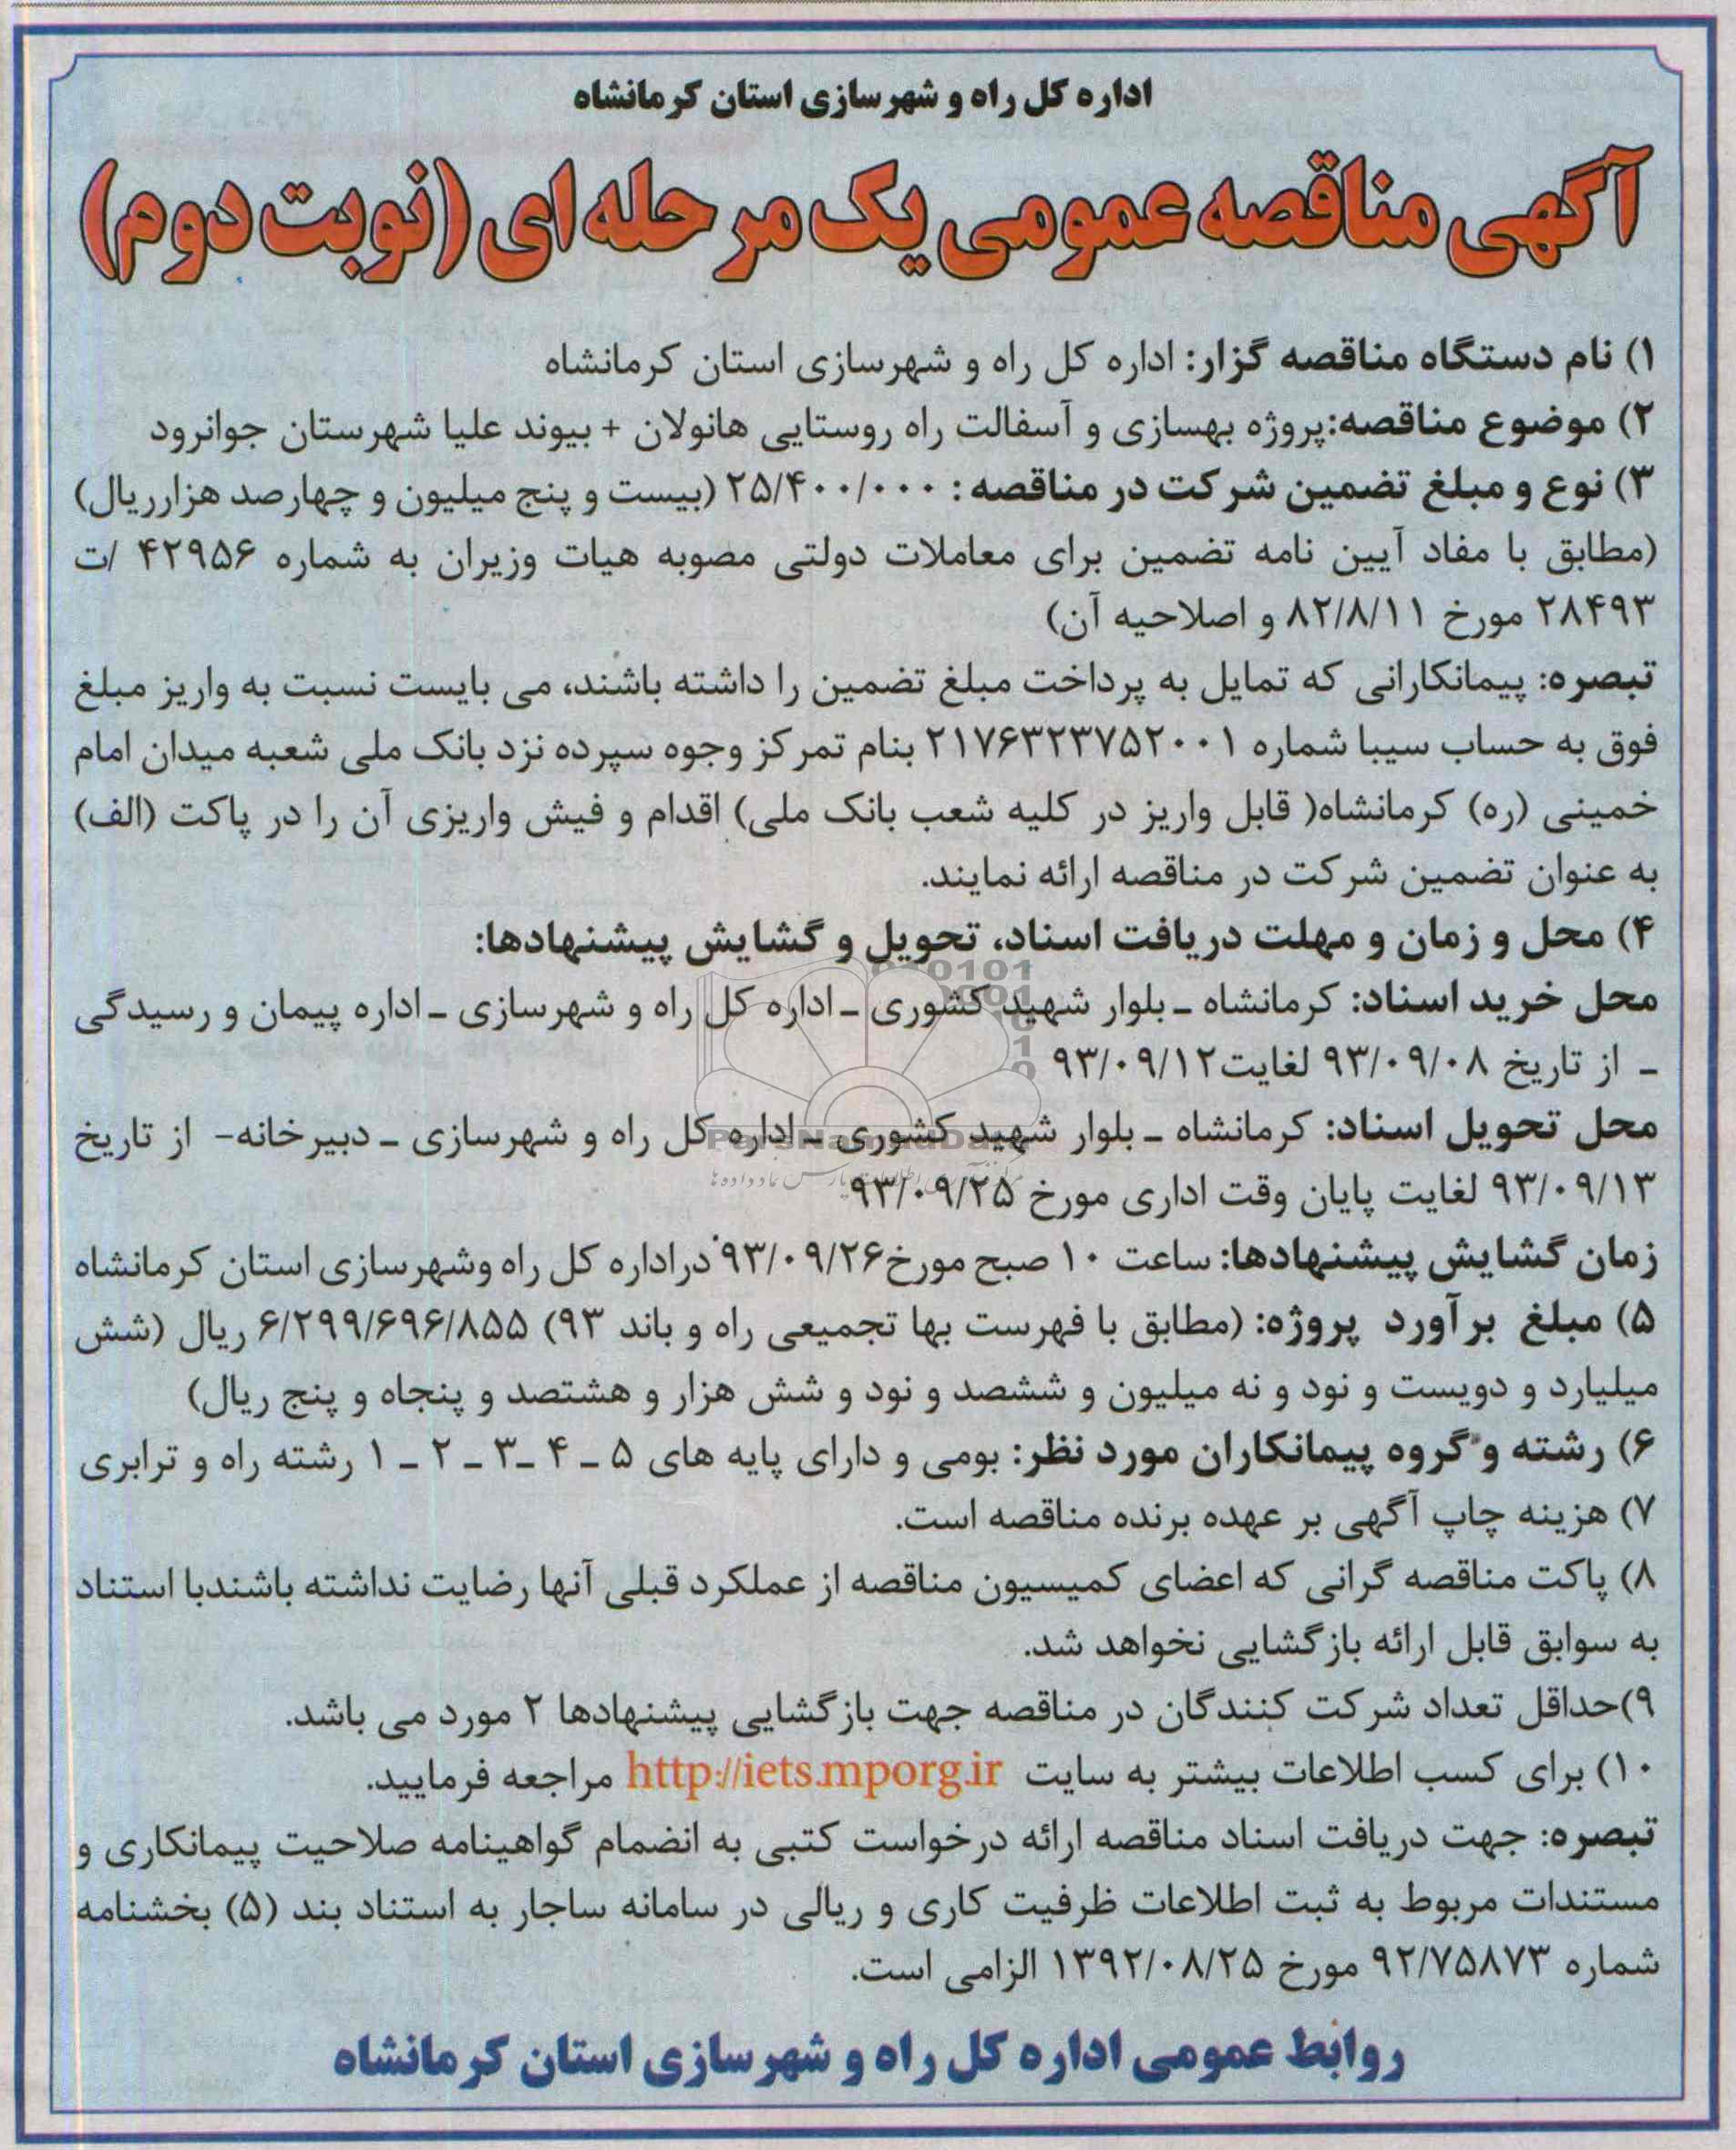 اداره کل راه و شهرسازی استان کرمانشاه
آگهی مناقصه عمومی یک مرحله ای (نوبت دوم)
۱) نام دستگاه مناقصه گزار: اداره کل راه و شهرسازی استان کرمانشاه
۲) موضوع مناقصه:پروژه بهسازی و آسفالت راه روستایی هانولان + بیوند علیا شهرستان جوانرود
۳) نوع و مبلغ تضمین شرکت در مناقصه: ۲۵/۴۰۰/۰۰۰ (بیست و پنج میلیون و چهارصد هزارریال)
(مطابق با مفاد آیین نامه تضمین برای معاملات دولتی مصوبه هیات وزیران به شماره ۴۲۹۵۶ /ت
۲۸۴۹۳ مورخ ۸۲/۸/۱۱ و اصلاحیه آن)
تبصره: پیمانکارانی که تمایل به پرداخت مبلغ تضمین را داشته باشند، می بایست نسبت به واریز مبلغ
فوق به حساب سیبا شماره ۲۱۷۶۳۲۳۷۵۲۰۰۱ بنام تمرکز وجوه سپرده نزد بانک ملی شعبه میدان امام
خمینی (ره) کرمانشاه( قابل واریز در کلیه شعب بانک ملی) اقدام و فیش واریزی آن را در پاکت (الف)
به عنوان تضمین شرکت در مناقصه ارائه نمایند.
۴) محل و زمان و مهلت دریافت اسناد، تحویل و گشایش پیشنهادها:
محل خرید اسناد: کرمانشاه ـ بلوار شهید کشوری ـ اداره کل راه و شهرسازی ـ اداره پیمان و رسیدگی
ـ از تاریخ ۹۳/۰۹/۰۸ لغایت۹۳/۰۹/۱۲
محل تحویل اسناد: کرمانشاه ـ بلوار شهید کشوری ـ اداره کل راه و شهرسازی ـ دبیرخانه- از تاریخ
۹۳/۰۹/۱۳ لغایت پایان وقت اداری مورخ ۹۳/۰۹/۲۵
زمان گشایش پیشنهادها: ساعت ۱۰ صبح مورخ۹۳/۰۹/۲۶ دراداره کل راه وشهرسازی استان کرمانشاه
۵) مبلغ برآورد پروژه: (مطابق با فهرست بها تجمیعی راه و باند ۹۳) ۶/۲۹۹/۶۹۶/۸۵۵ ریال (شش
میلیارد و دویست و نود و نه میلیون و ششصد و نود و شش هزار و هشتصد و پنجاه و پنج ریال)
۶) رشته و گروه پیمانکاران مورد نظر: بومی و دارای پایه های ۵ ـ ۴ ـ۳ ـ ۲ ـ ۱ رشته راه و ترابری
۷) هزینه چاپ آگهی بر عهده برنده مناقصه است.
۸) پاکت مناقصه گرانی که اعضای کمیسیون مناقصه از عملکرد قبلی آنها رضایت نداشته باشندبا استناد
به سوابق قابل ارائه بازگشایی نخواهد شد.
۹)حداقل تعداد شرکت کنندگان در مناقصه جهت بازگشایی پیشنهادها ۲ مورد می باشد.
۱۰) برای کسب اطلاعات بیشتر به سایت http://iets.mporg.ir مراجعه فرمایید.
تبصره: جهت دریافت اسناد مناقصه ارائه درخواست کتبی به انضمام گواهینامه صلاحیت پیمانکاری و
مستندات مربوط به ثبت اطلاعات ظرفیت کاری و ریالی در سامانه ساجار به استناد بند (۵) بخشنامه
شماره ۹۲/۷۵۸۷۳ مورخ ۱۳۹۲/۰۸/۲۵ الزامی است.
روابط عمومی اداره کل راه و شهرسازی استان کرمانشاه